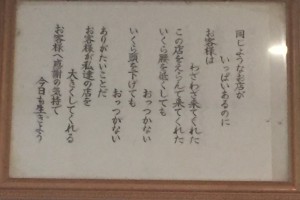 同じようなお店が
いっぱいあるのに
お客様は
わざわざ来てくれた
この店をえらんで来てくれた
いくら腰を低くしても
おっつかない
いくら頭を下げても
おっつかない
ありがたいことだ
お客様が私達の店を
大きくしてくれる
お客様へ感謝の気持で
今日も生きよう